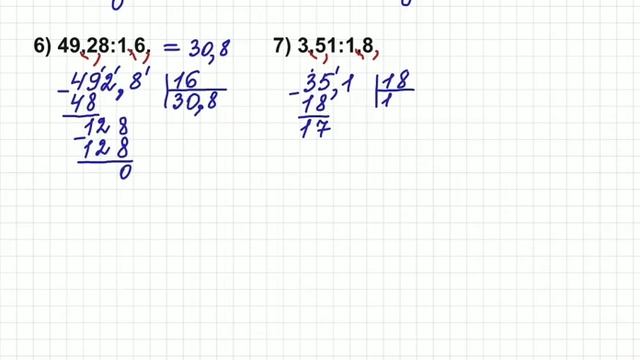 6) 49,28:1,6, = 30,8
492,8 | 16
48 30,8
128
128
0
7) 3,51:1,8,
35,1 | 18
18 1
17